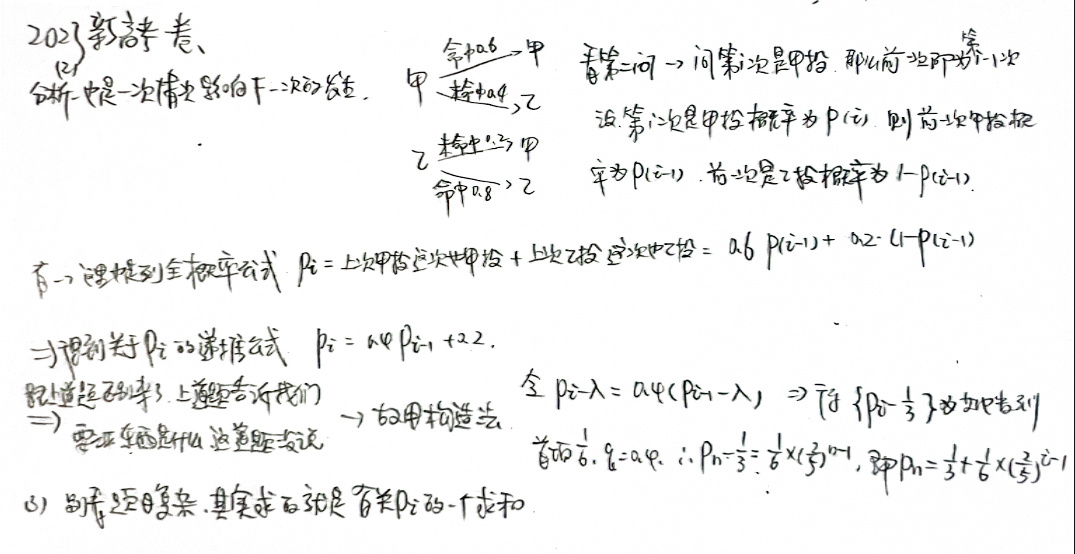 2023新高考卷、
(2)
分析-也是一次情况影响下一次的发生.
甲 命中0.6 → 甲
未命中0.4 → 乙
乙 未命中0.2 → 甲
命中0.8 → 乙
看第二问 → 问第i次是甲投. 那么前一次即为第i-1次
设.第i次是甲投概率为P(i). 则前一次甲投概
率为P(i-1). 前一次是乙投概率为1-P(i-1).
有→ 全概率公式 Pi = 上次甲投这次也甲投 + 上次乙投这次 = 0.6 P(i-1) + 0.2·(1-P(i-1)
⇒得到关于Pi的递推公式 Pi = 0.4Pi-1 + 0.2.
上道题告诉我们
⇒ 要证东西是什么 这道题没说 → 故用构造法
令 Pi-λ = 0.4(Pi-1-λ) ⇒ {Pi-1/3}为等比数列
首项1/6. q=0.4. ∴ Pn-1/3 = 1/6×(2/5)^n-1, 即Pn = 1/3+1/6×(2/5)^i-1
(3) 题目复杂.其实求的就是有关Pi的一个求和